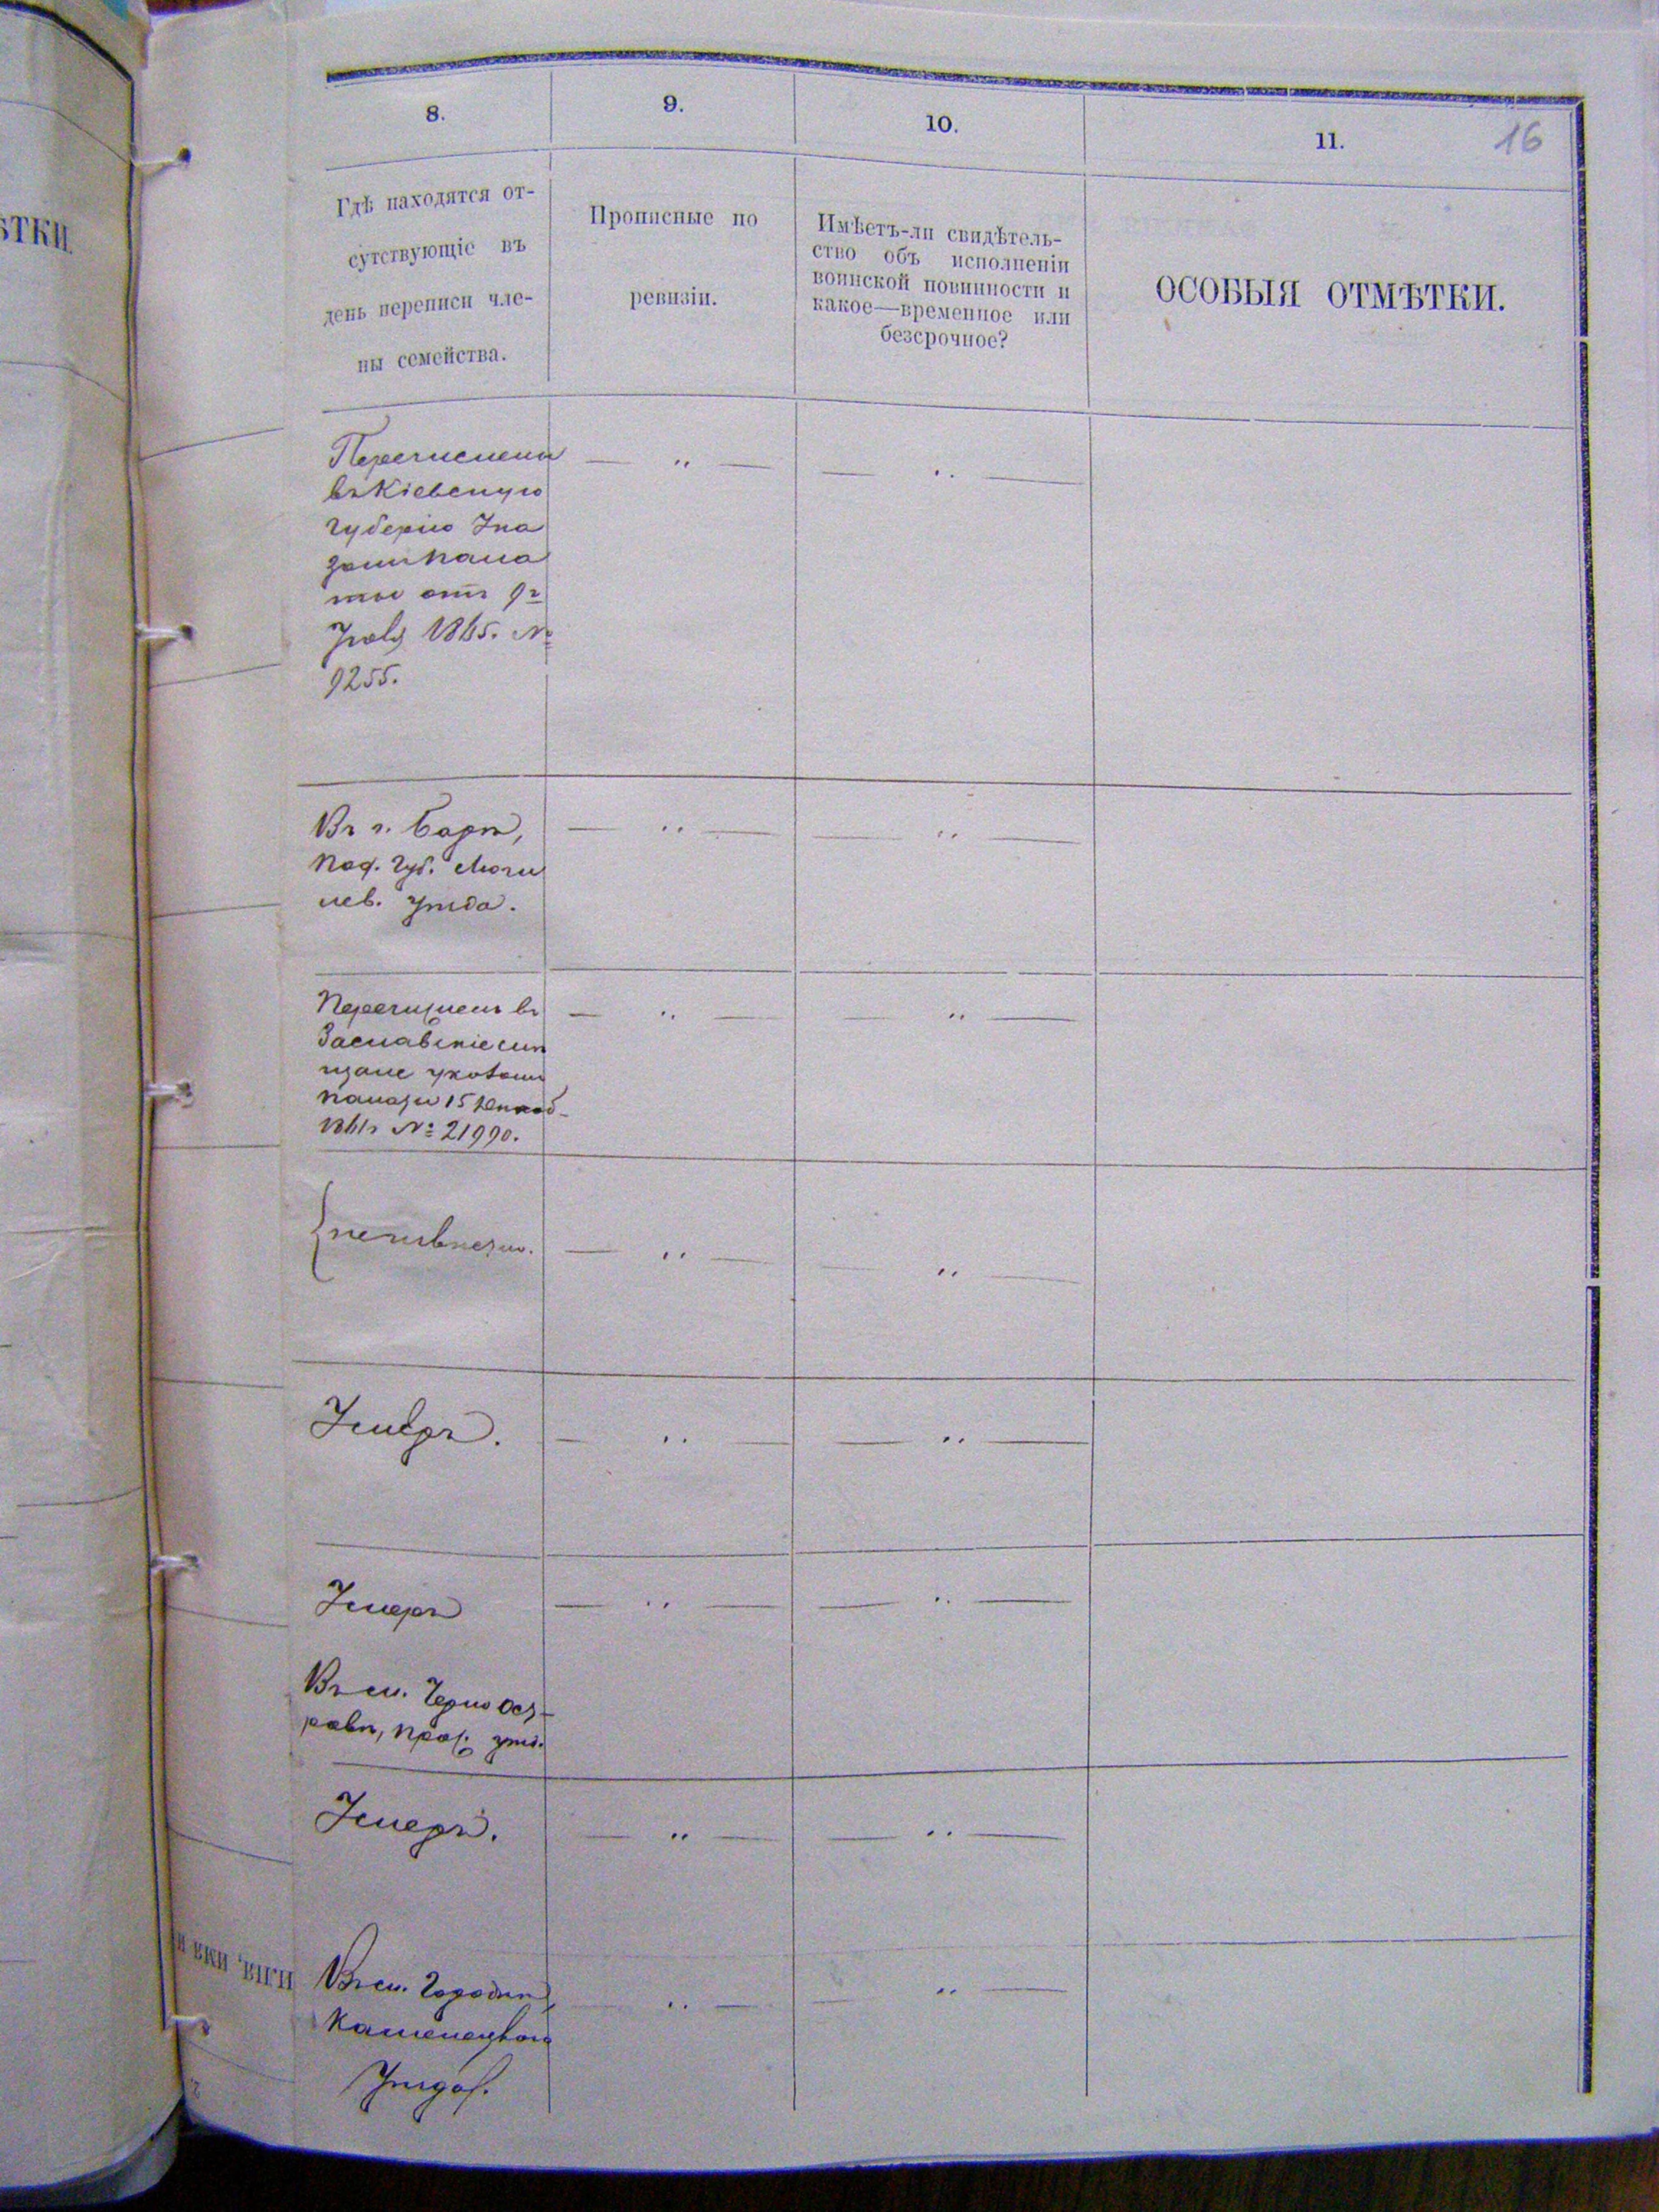 ѢТКИ.
8.
9.
10.
11.
16
Гдѣ находятся от-
сутствующіе въ
день переписи чле-
ны семейства.
Прописные по
ревизіи.
Имѣетъ-ли свидѣтель-
ство объ исполненіи
воинской повинности и
какое—временное или
безсрочное?
ОСОБЫЯ ОТМѢТКИ.
Перечислены
въ Кіевскую
губерію Ука
зомъ пала
ты отъ 9г
1865. №
9255.
Въ г. Барѣ,
Под. Губ. Моги
лев. уѣзда.
Перечисленъ въ
Заславскіе
щане указомъ
палаты 15
1861г № 21990.
Умеръ.
Умеръ
Въ м. Черно Ост-
ровѣ, Прос. уѣз.
Умеръ.
Въ м. Городкѣ,
Каменецкаго
Уѣзда.